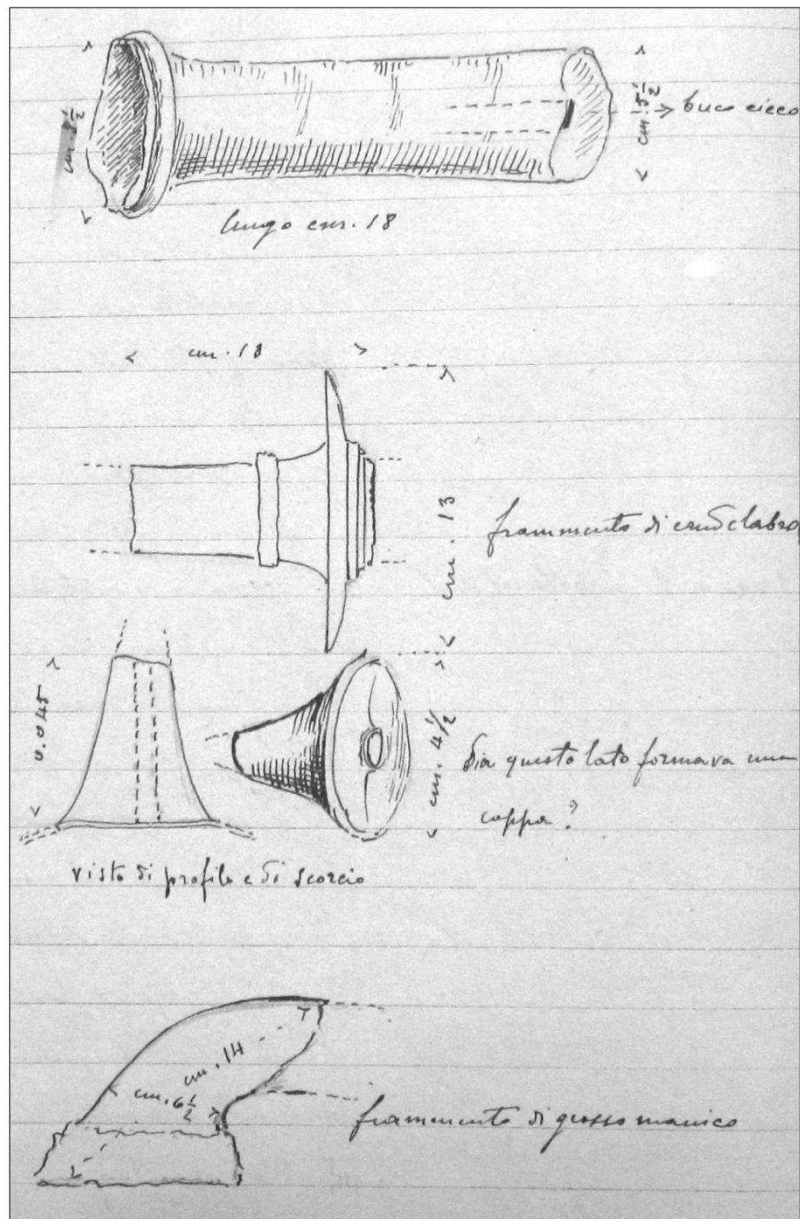 cm. 8 1/2
cm. 5 1/2
buco cieco
lungo cm. 18
cm. 18
cm. 13
frammento di candelabro
0.045
cm. 4 1/2
Da questo lato formava una
coppa?
visto di profilo e di scorcio
cm. 14
cm. 6 1/2
frammento di grosso manico